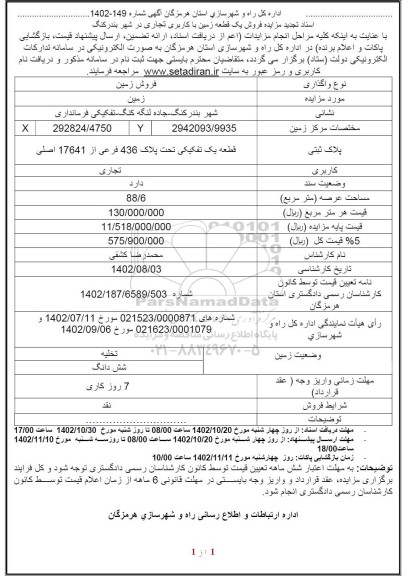 اداره كل راه و شهرسازي استان هرمزگان آگهي شماره 149-1402
اسناد تجدید مزایده فروش یک قطعه زمین با کاربری تجاری در شهر بندرکنگ
با عنایت به اینکه کلیه مراحل انجام مزایدات (اعم از دریافت اسناد، ارائه تضمین، ارسال پیشنهاد قیمت، بازگشایی
پاکات و اعلام برنده) در اداره کل راه و شهرسازی استان هرمزگان به صورت الکترونیکی در سامانه تدارکات
الکترونیکی دولت (ستاد) برگزار می گردد، متقاضیان محترم بایستی جهت ثبت نام در سامانه مذکور و دریافت نام
کاربری و رمز عبور به سایت www.setadiran.ir مراجعه فرمایند.
نوع واگذاری فروش زمین
مورد مزایده زمین
نشانی شهر بندرکنگ-جاده لنگه کنگ-تفکیکی فرمانداری
مختصات مرکز زمین 2942093/9935 Y 292824/4750 X
پلاک ثبتی قطعه یک تفکیکی تحت پلاک 436 فرعی از 17641 اصلی
کاربری تجاری
وضعیت سند دارد
مساحت عرصه (متر مربع) 88/6
قیمت هر متر مربع (ریال) 130/000/000
قیمت پایه مزایده (ریال) 11/518/000/000
5% قیمت کل (ریال) 575/900/000
نام کارشناس محمدرضا کشفی
تاریخ کارشناسی 1402/08/03
نامه تعیین قیمت توسط کانون
کارشناسان رسمی دادگستری استان
هرمزگان
شماره 1402/187/6589/503
رأی هیأت نمایندگی اداره کل راه و
شهرسازی
شماره های 021523/0000871 مورخ 1402/07/11 و
021623/0001079 مورخ 1402/09/06
وضعیت زمین تخلیه
شش دانگ
مهلت زمانی واریز وجه ( عقد
قرارداد)
7 روز کاری
شرایط فروش نقد
توضیحات
- مهلت دریافت اسناد: از روز چهار شنبه مورخ 1402/10/20 ساعت 08/00 تا روز شنبه مورخ 1402/10/30 ساعت 17/00
- مهلت ارسال پیشنهاد: از روز چهار شنبه مورخ 1402/10/20 ساعت 08/00 تا روزسه شنبه مورخ 1402/11/10
ساعت18/00
- زمان بازگشایی پاکات: روز چهارشنبه مورخ 1402/11/11 ساعت 10/00
توضیحات: به مهلت اعتبار شش ماهه تعیین قیمت توسط کانون کارشناسان رسمی دادگستری توجه شود و کل فرایند
برگزاری مزایده، عقد قرارداد و واریز وجه بایستی در مهلت قانونی 6 ماهه از زمان اعلام قیمت توسط کانون
کارشناسان رسمی دادگستری انجام شود.
اداره ارتباطات و اطلاع رسانی راه و شهرسازي هرمزگان
1 از 1
ParsNamadData
۰۲۱-۸۸۳۴۹۶۷۰-۵